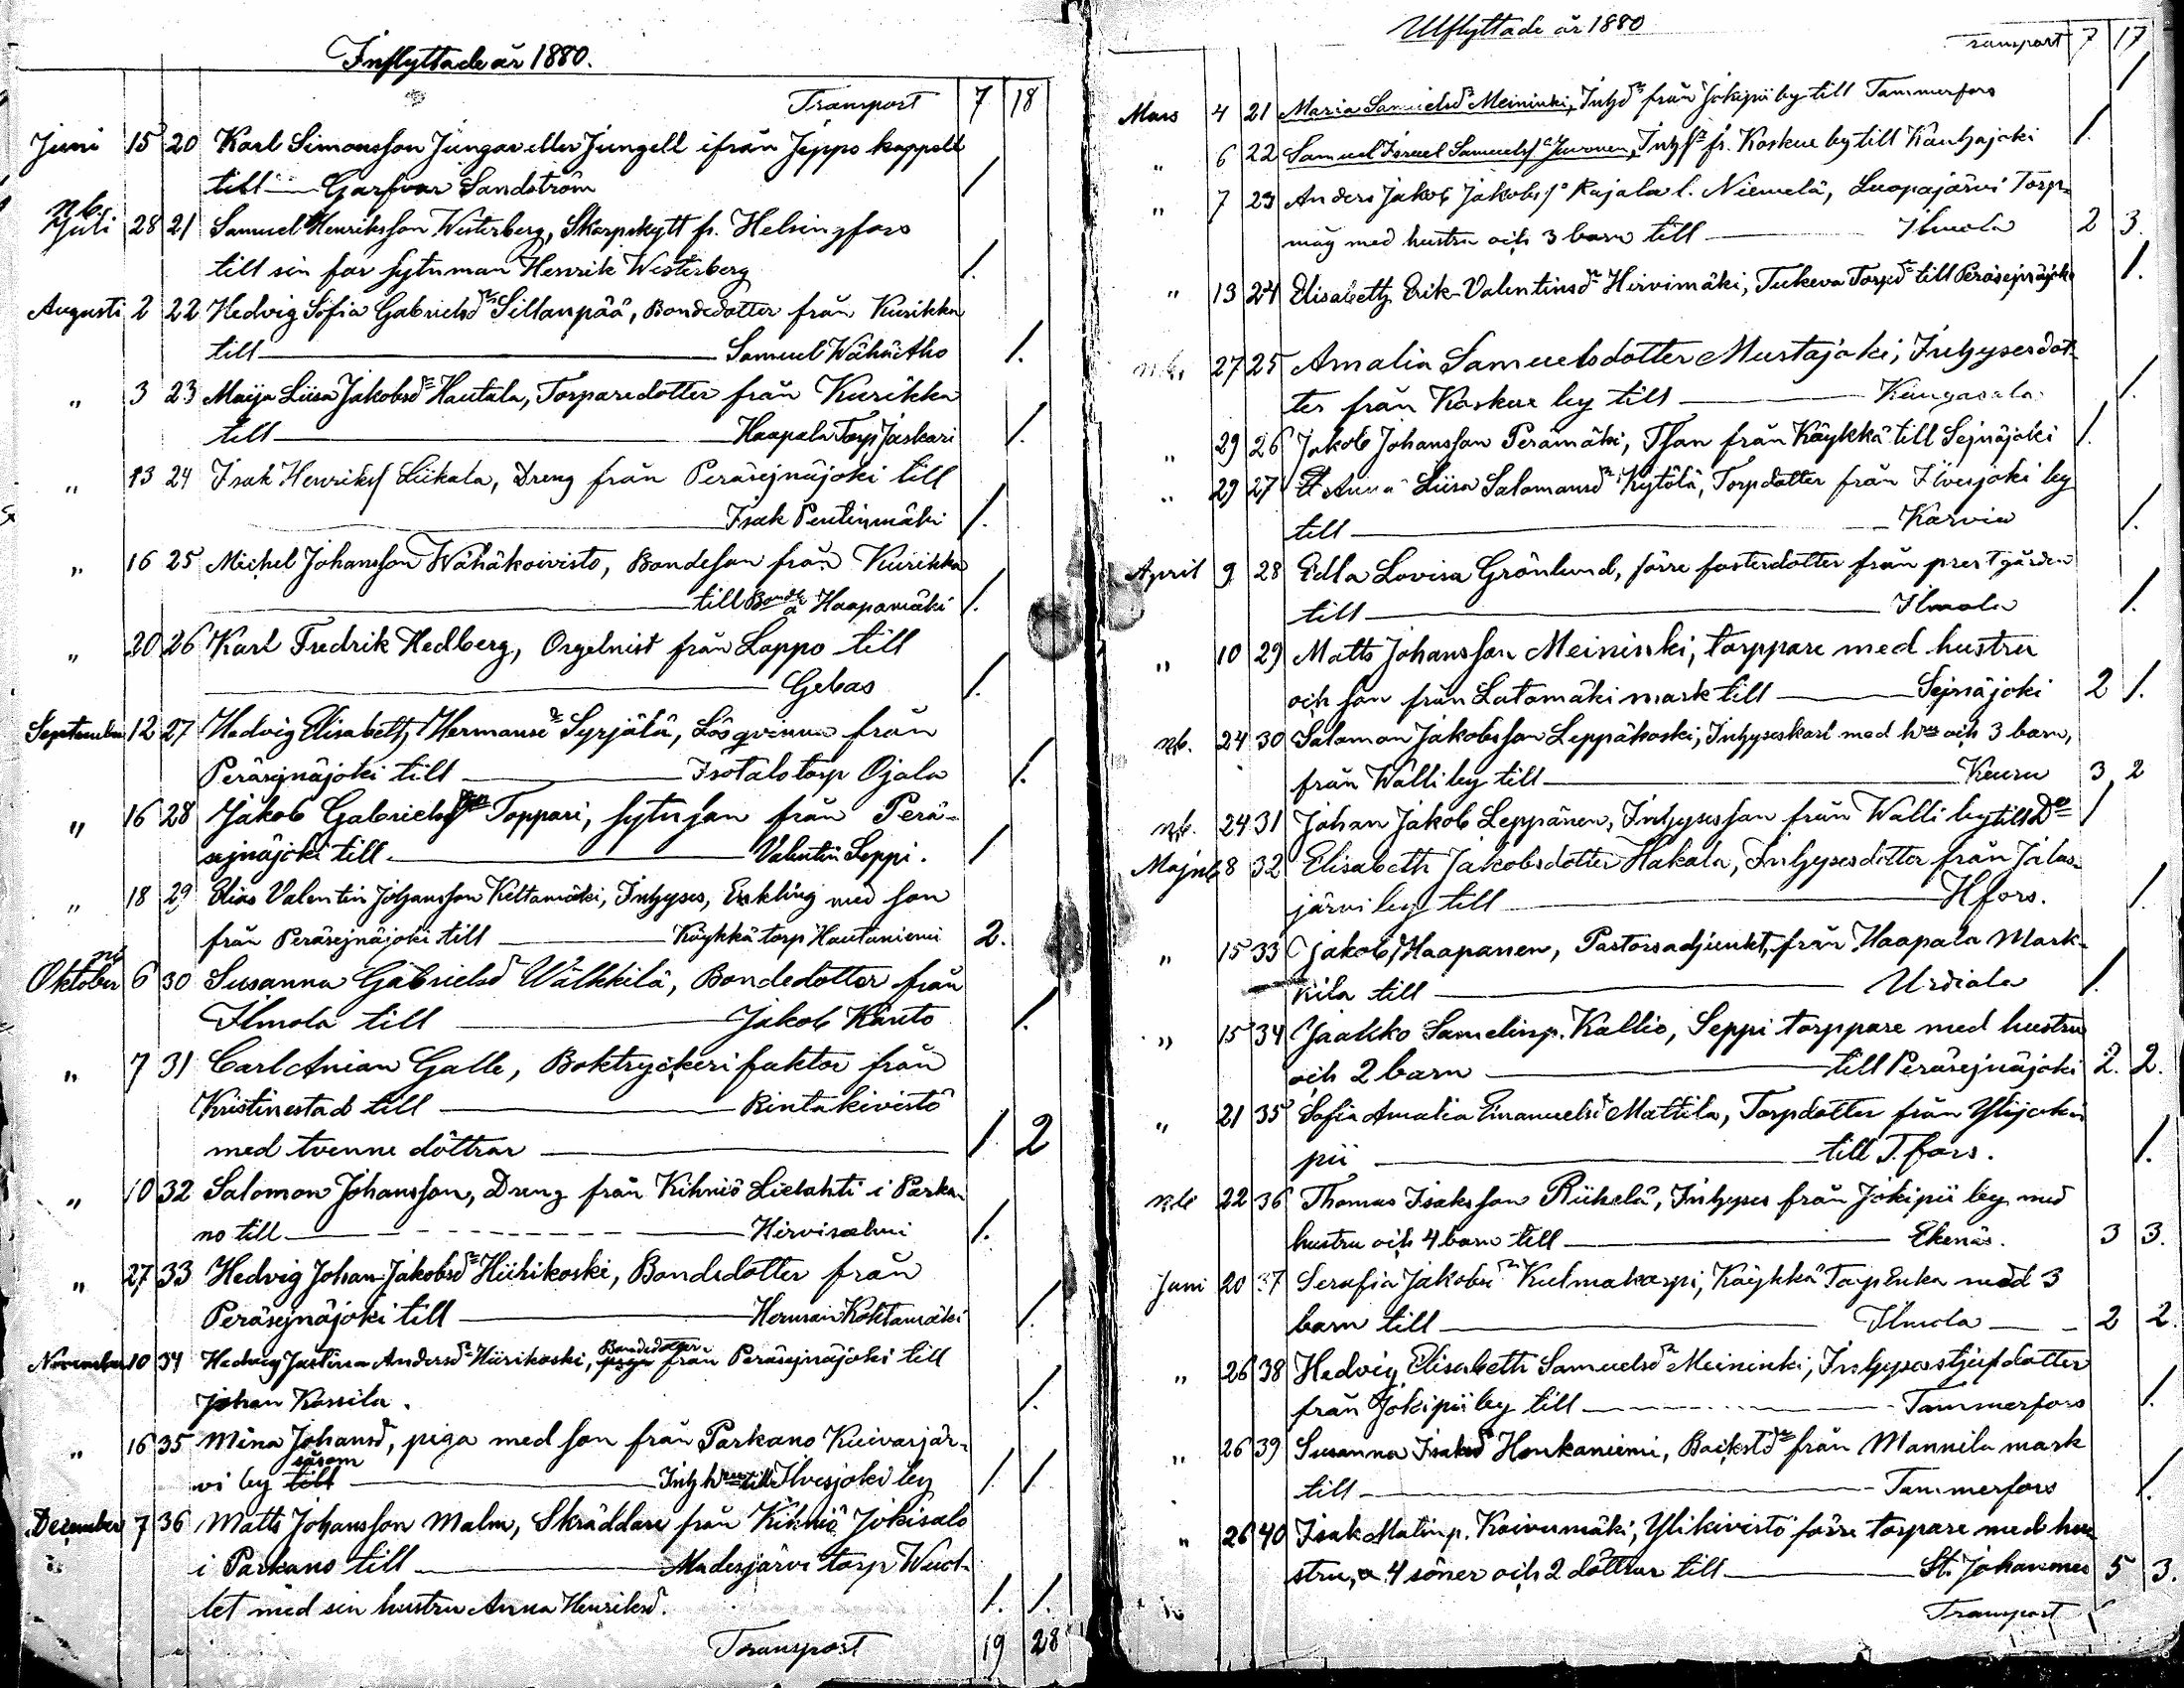 Inflyttade år 1880.
Transport 7 18
Juni 15 20 Karl Simonsson Jungar eller Jungell ifrån Jeppo kappell
till — Garfvar Sandström 1
nb. Juli 28 21 Samuel Henriksson Westerberg, Skarpskytt fr. Helsingfors
till sin far sytnman Henrik Westerberg 1.
Augusti 2 22 Hedvig Sofia Gabrielsdr Sillanpää, Bondedotter från Kurikka
till — Samuel Wähäaho 1.
" 3 23 Maija Liisa Jakobsdr Hautala, Torparedotter från Kurikka
till — Haapala Torp Jaskari 1.
" 13 24 Isak Henrikss Liikala, Dreng från Peräsejnäjoki till
— Isak Pentinmäki 1.
" 16 25 Michel Johansson Wähäkoivisto, Bondeson från Kurikka
— till Bonde å Haapamäki 1.
" 20 26 Karl Fredrik Hedberg, Orgelnist från Lappo till
— Gebas 1.
September 12 27 Hedvig Elisabeth Hermansdr Syrjälä, Lösqvinna från
Peräsejnäjoki till — Isotalo torp Ojala 1.
" 16 28 Jakob Gabrielss Toppari, sytnson från Perä-
sejnäjoki till — Valentin Seppi. 1
" 18 29 Elias Valentin Johansson Keltamäki, Inhyses, Enkling med son
från Peräsejnäjoki till — Käykkä torp Hautaniemi 2.
nb Oktober 6 30 Susanna Gabrielsdr Wälkkilä, Bondedotter från
Ilmola till — Jakob Kauto 1.
" 7 31 Carl Anian Galle, Boktryckerifaktor från
Kristinestad till — Rintakivistö
med tvenne döttrar — 1 2
" 10 32 Salomon Johansson, Dreng från Kihniö Lielahti i Parka-
no till — Hirvisalmi 1.
" 27 33 Hedvig Johan Jakobsdr Hiirikoski, Bondedotter från
Peräsejnäjoki till — Herman Koktamäki 1
November 10 34 Hedvig Justina Andersdr Hiirikoski, Bondedotter från Peräsejnäjoki till
Johan Kassila. 1.
" 16 35 Mina Johansd, piga med son från Parkano Kuivasjär-
vi by såsom — Inhhru till Ilvesjoki by 1 1
December 7 36 Matts Johansson Malm, Skräddare från Kihniö Jokisalo
i Parkano till — Madesjärvi torp Wuol-
let med sin hustru Anna Henriksd. 1. 1.
Transport 19 28
Utflyttade år 1880
Transport 7 17
Mars 4 21 Maria Samuelsdr Meininki, Inhdr från Jokipii by till Tammerfors 1
" 6 22 Samuel Israel Samuelss Juvonen, Inhsn fr. Koskue by till Kauhajoki 1.
" 7 23 Anders Jakob Jakobss Rajala l. Niemelä, Luopajärvi Torp-
måg med hustru och 3 barn till — Ilmola 2 3.
" 13 24 Elisabeth Erik-Valentinsdr Hirvimäki, Tukeva Torpdr till Peräsejnäjoki 1.
nb. 27 25 Amalia Samuelsdotter Mustajoki, Inhysesdot-
ter från Koskue by till — Kangasala 1.
" 29 26 Jakob Johansson Perämäki, Tson från Käykkä till Sejnäjoki 1.
" 29 27 Anna Liisa Salomonsdr Kytölä, Torpdotter från Ilvesjoki by
till — Karvia 1.
April 9 28 Edla Lovisa Grönlund, förre fosterdotter från prestgården
till — Ilmola 1.
" 10 29 Matts Johansson Meininki, torppare med hustru
och son från Latomäki mark till — Sejnäjoki 2 1.
nb. 24 30 Salomon Jakobsson Leppäkoski, Inhyseskarl med hru och 3 barn,
från Walli by till — Keuru 3 2
nb. 24 31 Johan Jakob Leppänen, Inhysesson från Walli by till Do 1
Maj nb 8 32 Elisabeth Jakobsdotter Hakala, Inhysesdotter från Jalas-
järvi by till — Hfors. 1.
" 15 33 Jakob Haapanen, Pastorsadjunkt, från Haapala Mark-
kila till — Urdiala 1.
" 15 34 Jaakko Samelinp. Kallio, Seppi torppare med hustru
och 2 barn — till Peräsejnäjoki 2. 2.
" 21 35 Sofia Amalia Emanuelsdr Mattila, Torpdotter från Ylijoki-
pii — till T.fors. 1.
nb 22 36 Thomas Isaksson Riihelä, Inhyses från Jokipii by med
hustru och 4 barn till — Ekenäs. 3 3.
Juni 20 37 Serafia Jakobsdr Kulmakorpi, Käykkä Torp Enka med 3
barn till — Ilmola — 2 2.
" 26 38 Hedvig Elisabeth Samuelsdr Meininki, Inhysesstjufdotter
från Jokipii by till — Tammerfors 1.
" 26 39 Susanna Isaksd Honkaniemi, Backstdr från Mannila mark
till — Tammerfors 1.
" 26 40 Isak Matinp. Koivumäki, Ylikivistö förre torpare med hu-
stru, 4 söner och 2 döttrar till — St. Johannes 5 3.
Transport